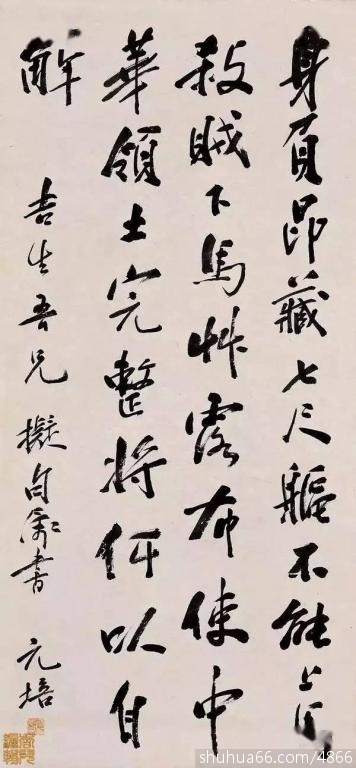 身負昂藏七尺軀不能上馬
殺賊下馬艸露布使中
華領土完整將何以自
解
吉生吾兄擬句屬書 元培
shuhua66.com/4866